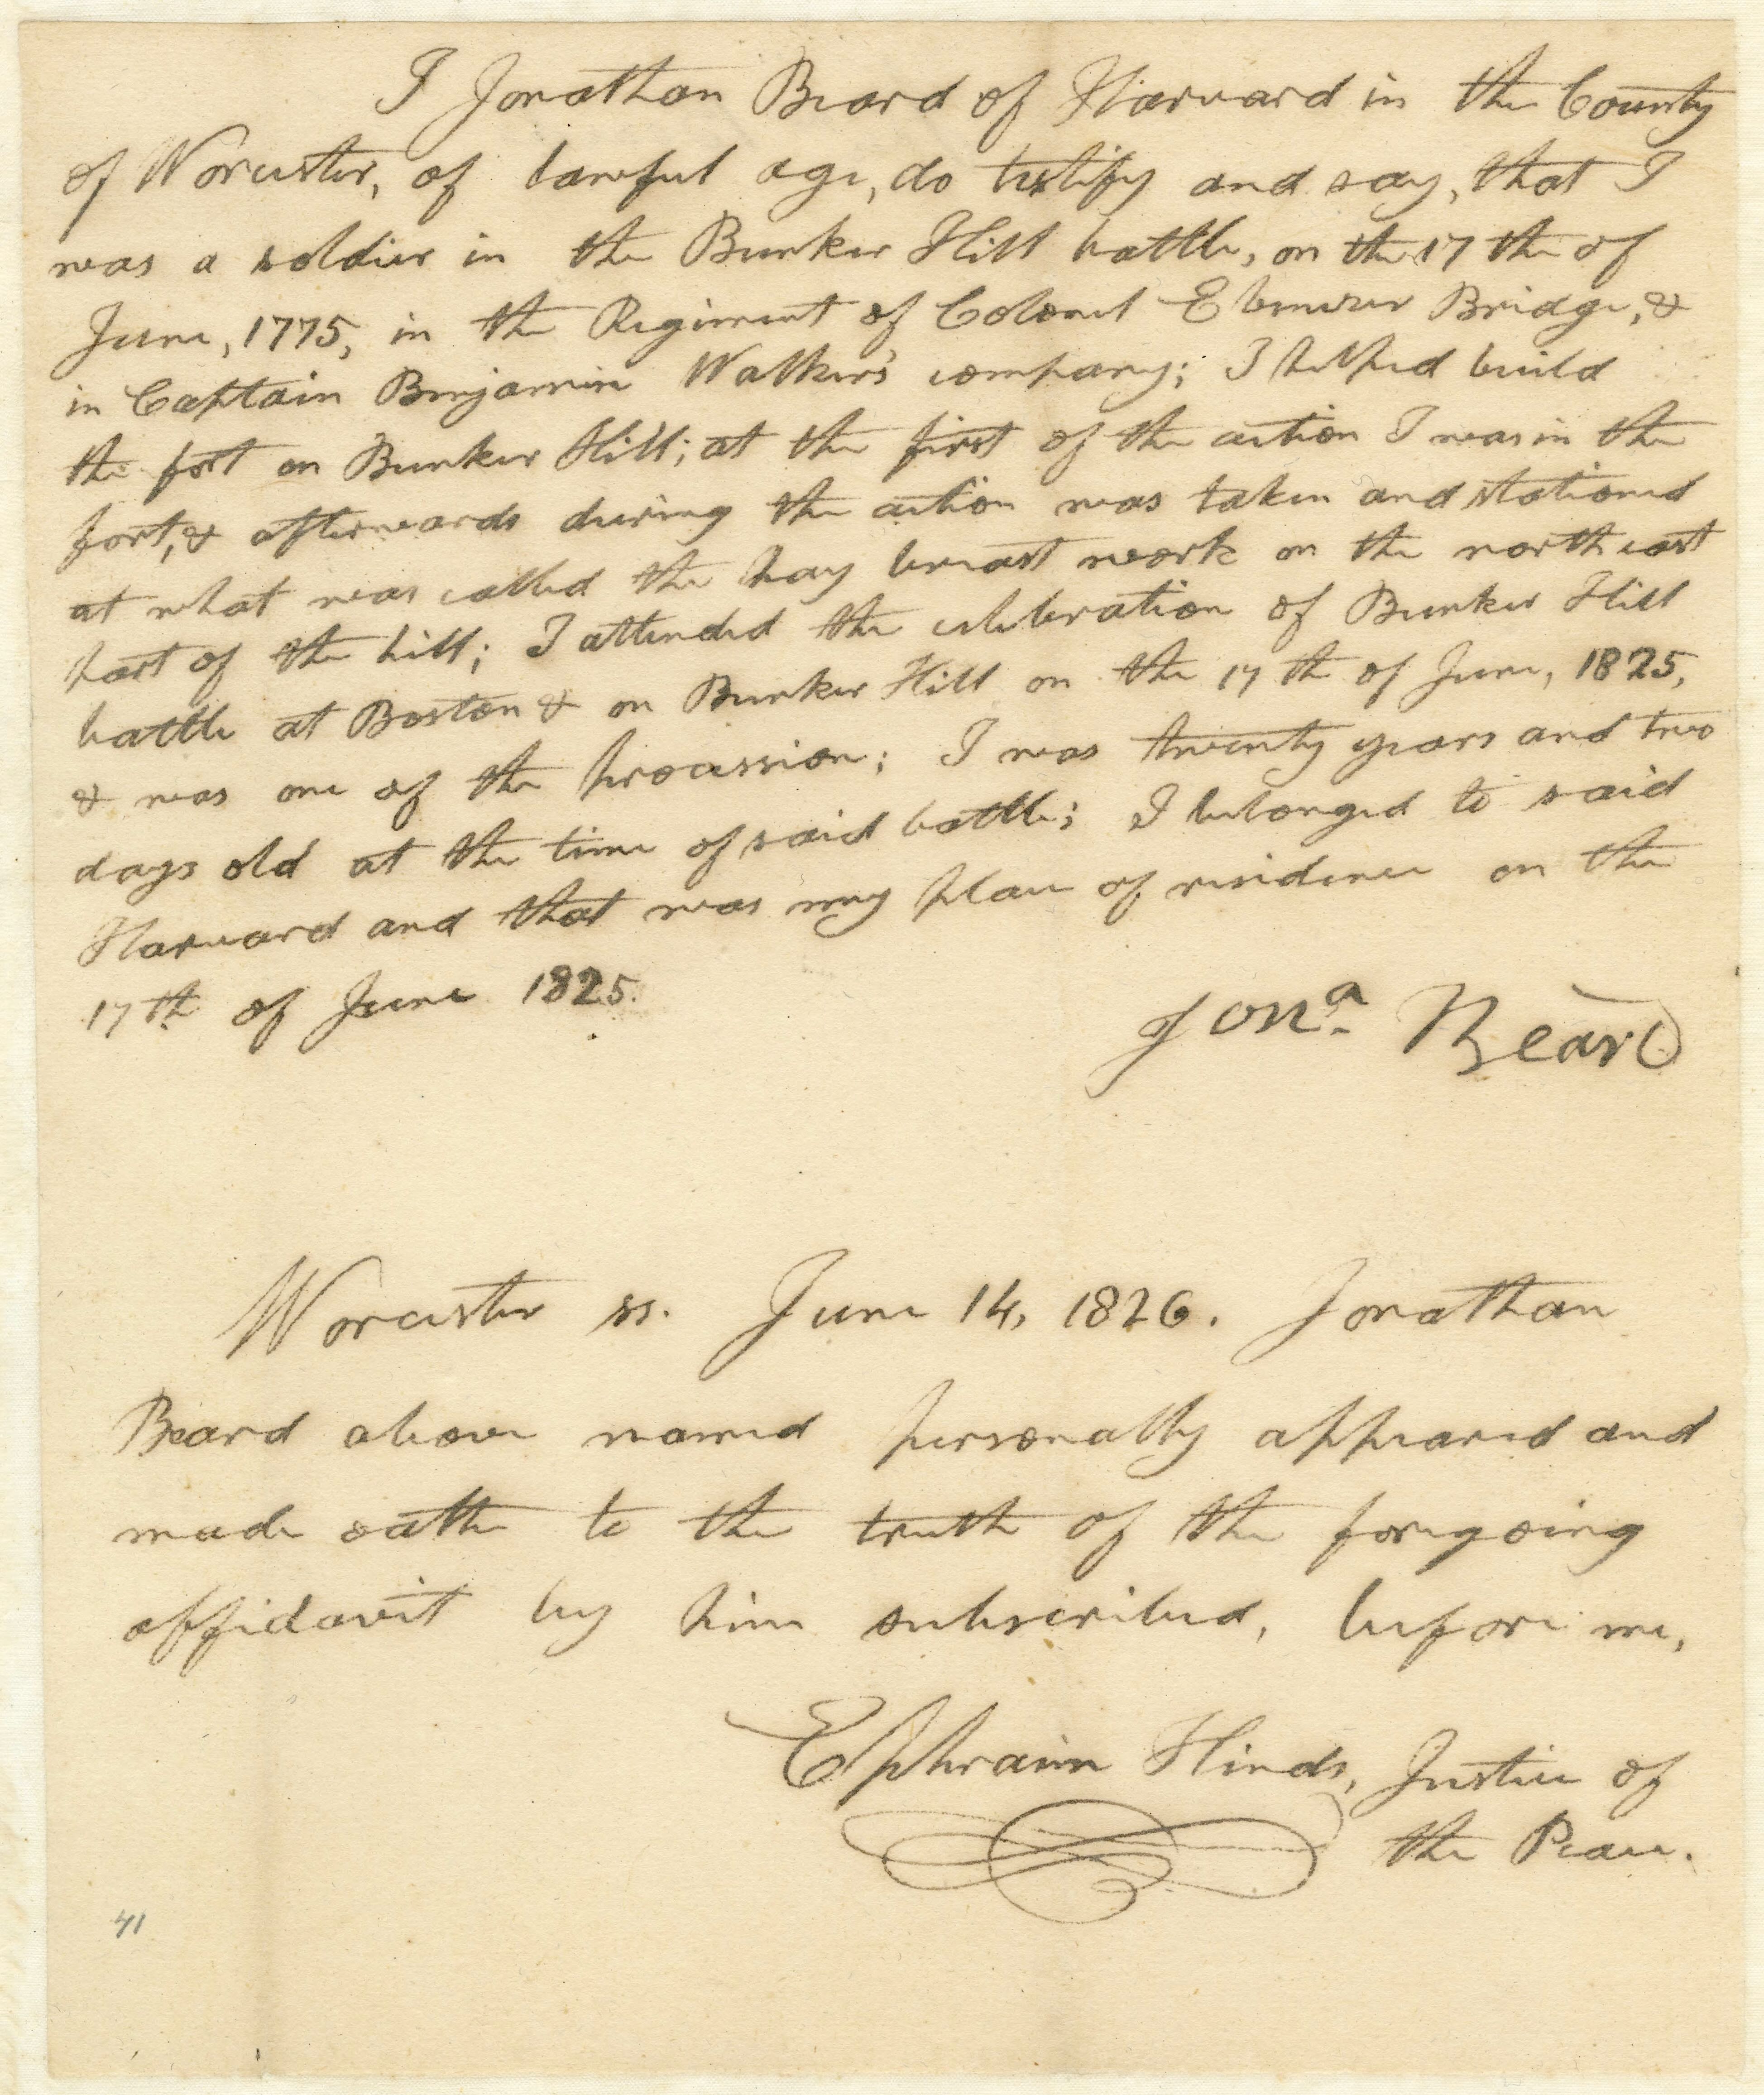 I Jonathan Beard of Harvard in the County
of Worcester, of lawful age, do testify and say, that I
was a soldier in the Bunker Hill battle, on the 17 the of
June, 1775, in the Regiment of Colonel Ebenezer Bridge, &
in Captain Benjamin Walker's company; I helped build
the fort on Bunker Hill; at the first of the action I was in the
fort, & afterwards during the action was taken and stationed
at what was called the hay breast work on the north east
part of the hill; I attended the celebration of Bunker Hill
battle at Boston & on Bunker Hill on the 17 th of June, 1825,
& was one of the procession; I was twenty years and two
days old at the time of said battle; I belonged to said
Harvard and that was my place of residence on the
17 th of June 1825.
Jonª Beard
Worcester ss. June 14, 1826. Jonathan
Beard above named personally appeared and
made oathe to the truth of the foregoing
affidavit by him subscribed, before me,
Ephraim Hinds, Justice of
the Peace.
41